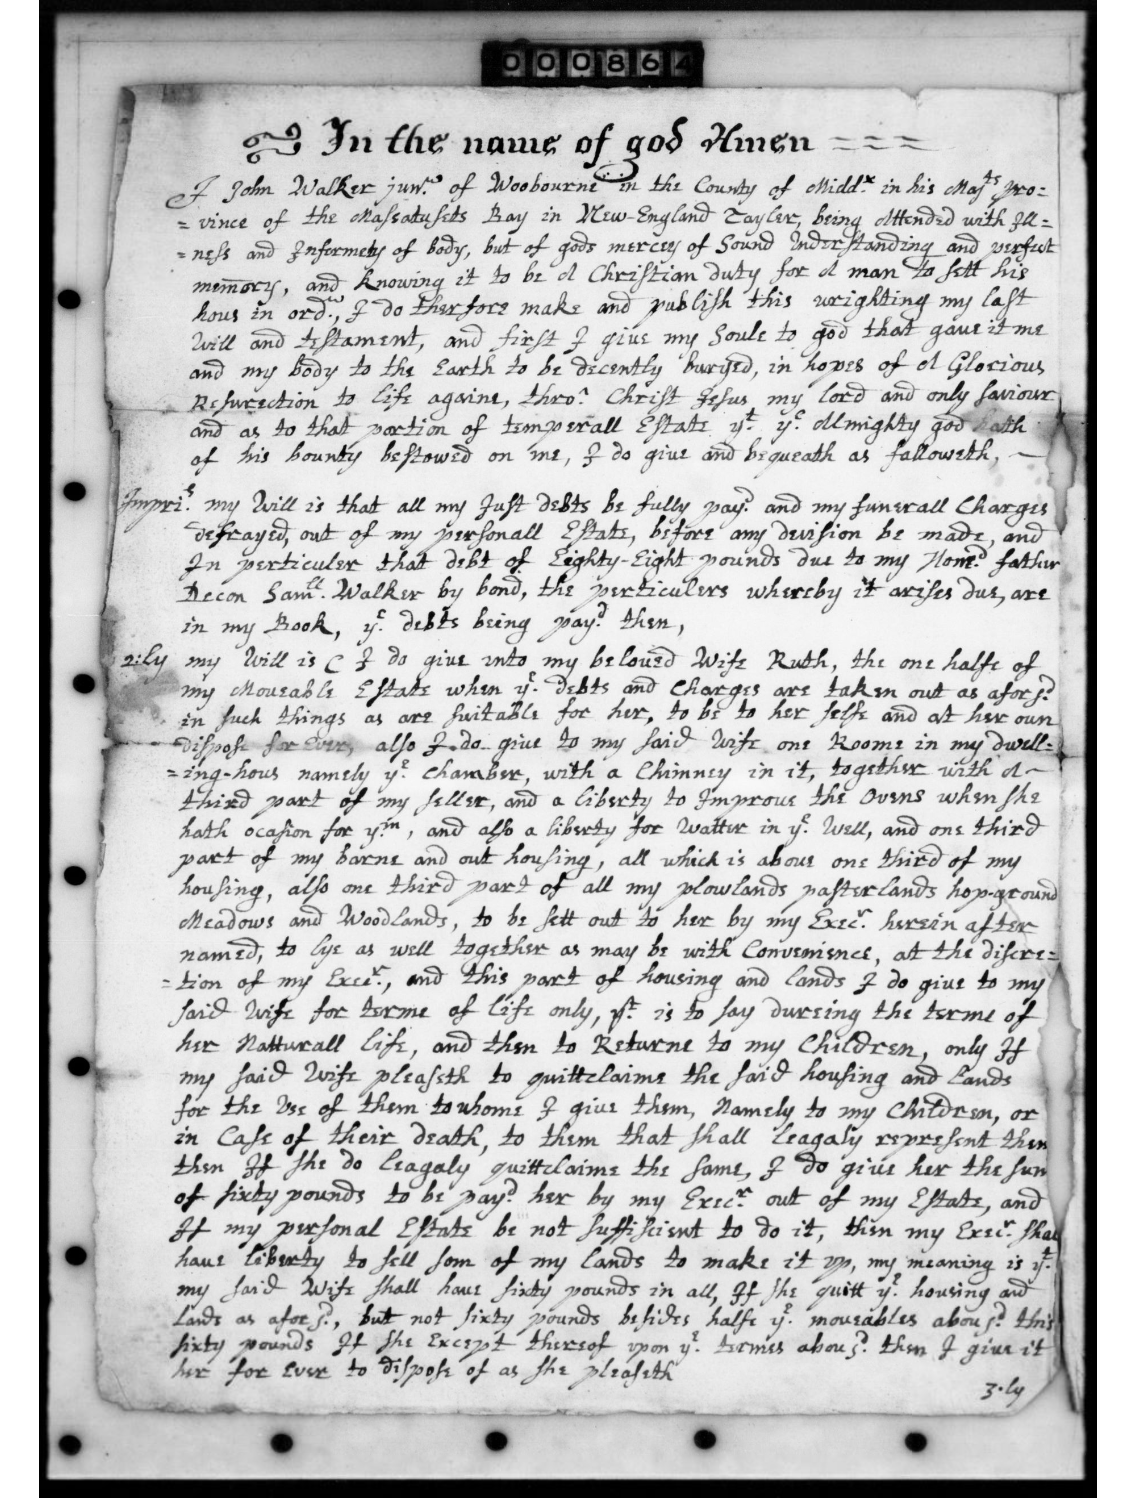 000864
In the name of god Amen
I John Walker junr. of Woobourne in the County of Middx. in his Majts pro=
=vince of the Massatusets Bay in New-England Tayler, being Attended with Ill=
=ness and Infermety of body, but of gods mercey of Sound Understanding and perfect
memory, and Knowing it to be A Christian duty for A man to sett his
hous in ordr., I do therfore make and publish this wrighting my last
Will and testament, and first I give my Soule to god that gave it me
and my body to the Earth to be decently buryed, in hopes of A Glorious
Resurection to life againe, thro: Christ Jesus my lord and only saviour
and as to that portion of temperall Estate yt. ye. Almighty god hath
of his bounty bestowed on me, I do give and bequeath as falloweth,
Impris. my Will is that all my Just debts be fully payd. and my funerall Charges
defrayed, out of my personall Estate, before any devision be made, and
In perticuler that debt of Eighty-Eight pounds due to my Honrd. father
Decon Samll. Walker by bond, the perticulers whereby it arises due, are
in my Book, ye. debts being payd. then,
2:ly my Will is ( I do give unto my beloved Wife Ruth, the one halfe of
my Moveable Estate when ye. debts and Charges are taken out as aforsd.
in such things as are suitable for her, to be to her selfe and at her own
dispose for Ever, also I do give to my said Wife one Roome in my dwell=
=ing-hous namely ye. Chamber, with a Chimney in it, together with A
third part of my seller, and a liberty to Improve the Ovens when she
hath ocasion for ym., and also a liberty for Watter in ye. Well, and one third
part of my barne and out housing, all which is above one third of my
housing, also one third part of all my plowlands pasterlands hop-ground
Meadows and Woodlands, to be sett out to her by my Execr. herein after
named, to lye as well together as may be with Convenience, at the discre=
=tion of my Execr., and this part of housing and lands I do give to my
said Wife for terme of life only, yt. is to say dureing the terme of
her Natturall life, and then to Returne to my Children, only If
my said Wife pleaseth to quittclaime the said housing and lands
for the Use of them to whome I give them, Namely to my Children, or
in Case of their death, to them that shall leagaly represent then
then If she do leagaly quittclaime the same, I do give her the sum
of sixty pounds to be payd. her by my Execr. out of my Estate, and
If my personal Estate be not suffiscient to do it, then my Execr. shal
have liberty to sell som of my lands to make it up, my meaning is yt.
my said Wife shall have sixty pounds in all, If she quitt ye. housing and
lands as aforsd., but not sixty pounds besides halfe ye. moveables abousd. this
sixty pounds If she Except thereof upon ye. termes abousd. then I give it
her for Ever to dispose of as she pleaseth
3.ly